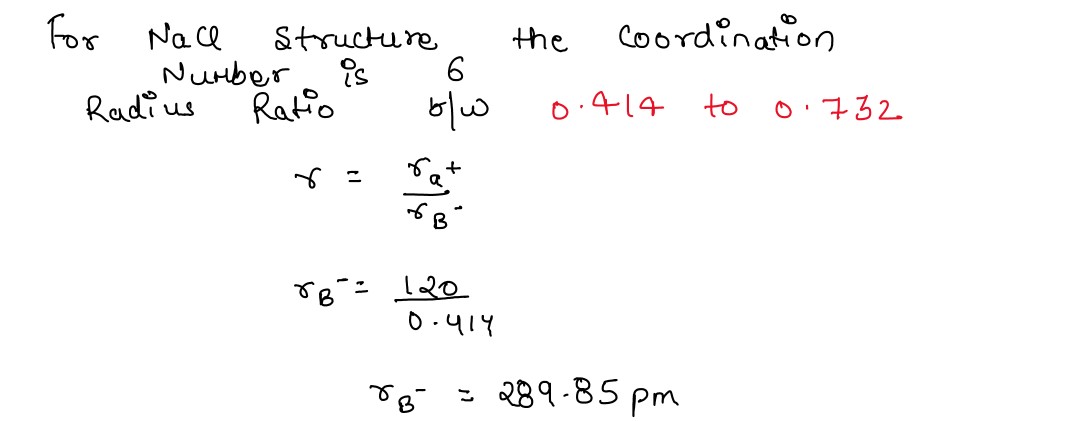 For NaCl Structure the Coordination
Number is 6
Radius Ratio b/w 0.414 to 0.732
r = ra+ / rB-
rB- = 120 / 0.414
rB- = 289.85 pm